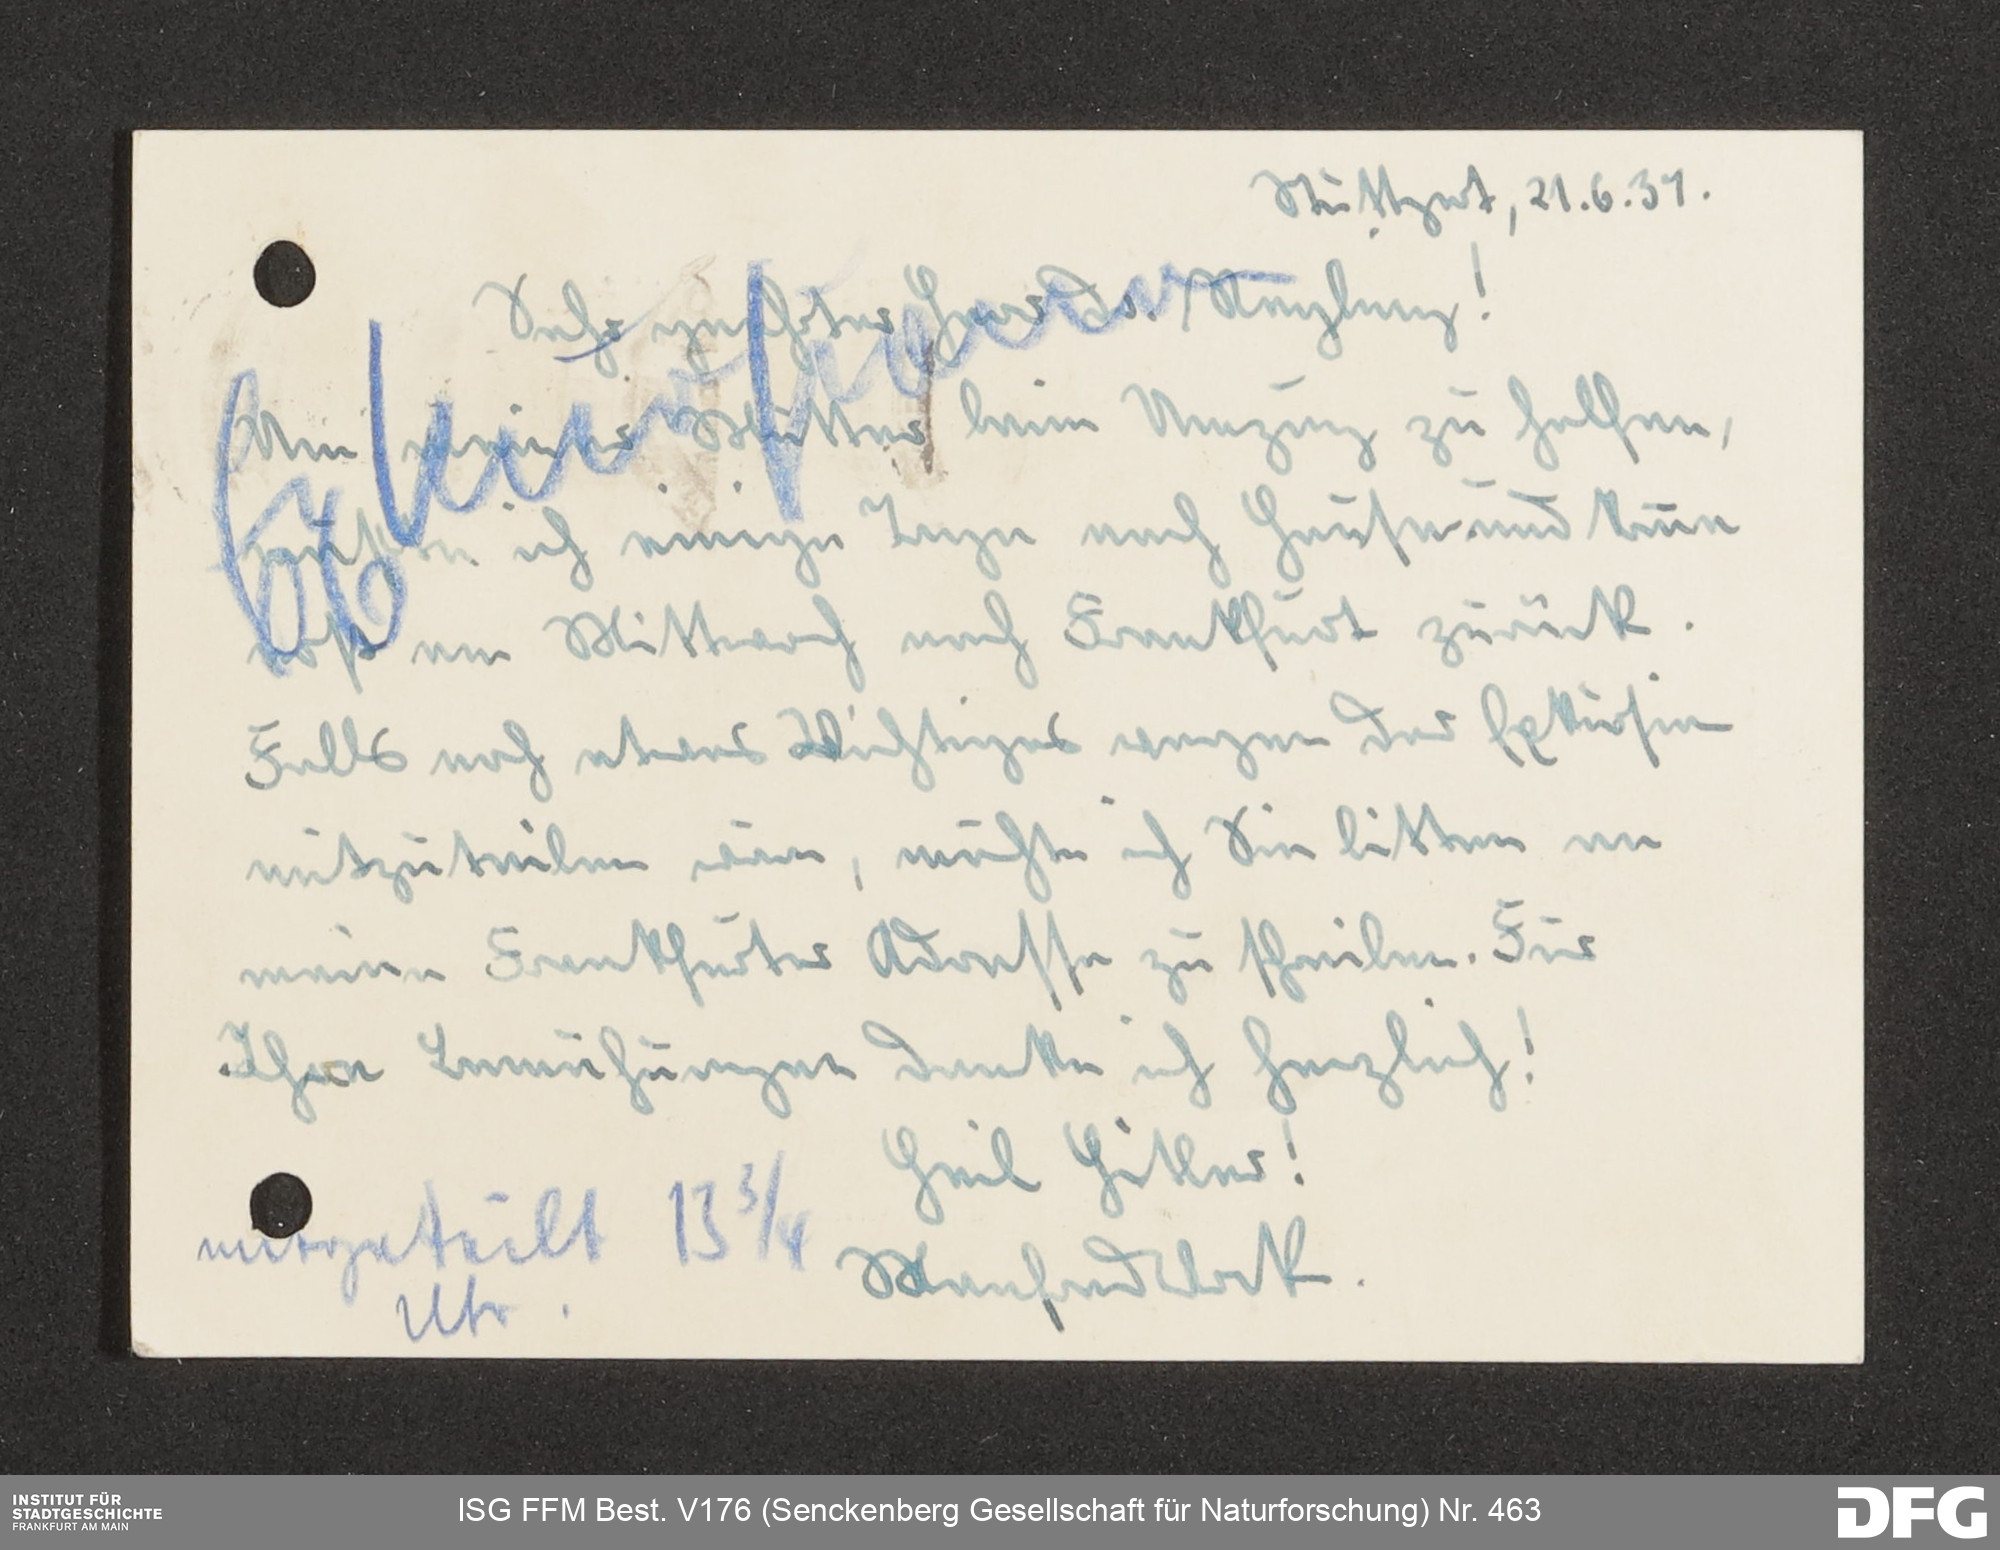 Stuttgart, 21.6.37.
Sehr geehrter Herr Dr.
Um meiner Mutter beim Umzug zu helfen,
mußte ich einige Tage nach Hause und kann
erst am Mittwoch nach Frankfurt zurück.
Falls noch etwas Wichtiges wegen der Exkursion
mitzuteilen wäre, möchte ich Sie bitten an
meine Frankfurter Adresse zu schreiben. Für
Ihre Bemühungen danke ich herzlich!
Heil Hitler!
Manfred
mitgeteilt 13 3/4
Uhr.
INSTITUT FÜR
STADTGESCHICHTE
FRANKFURT AM MAIN
ISG FFM Best. V176 (Senckenberg Gesellschaft für Naturforschung) Nr. 463
DFG